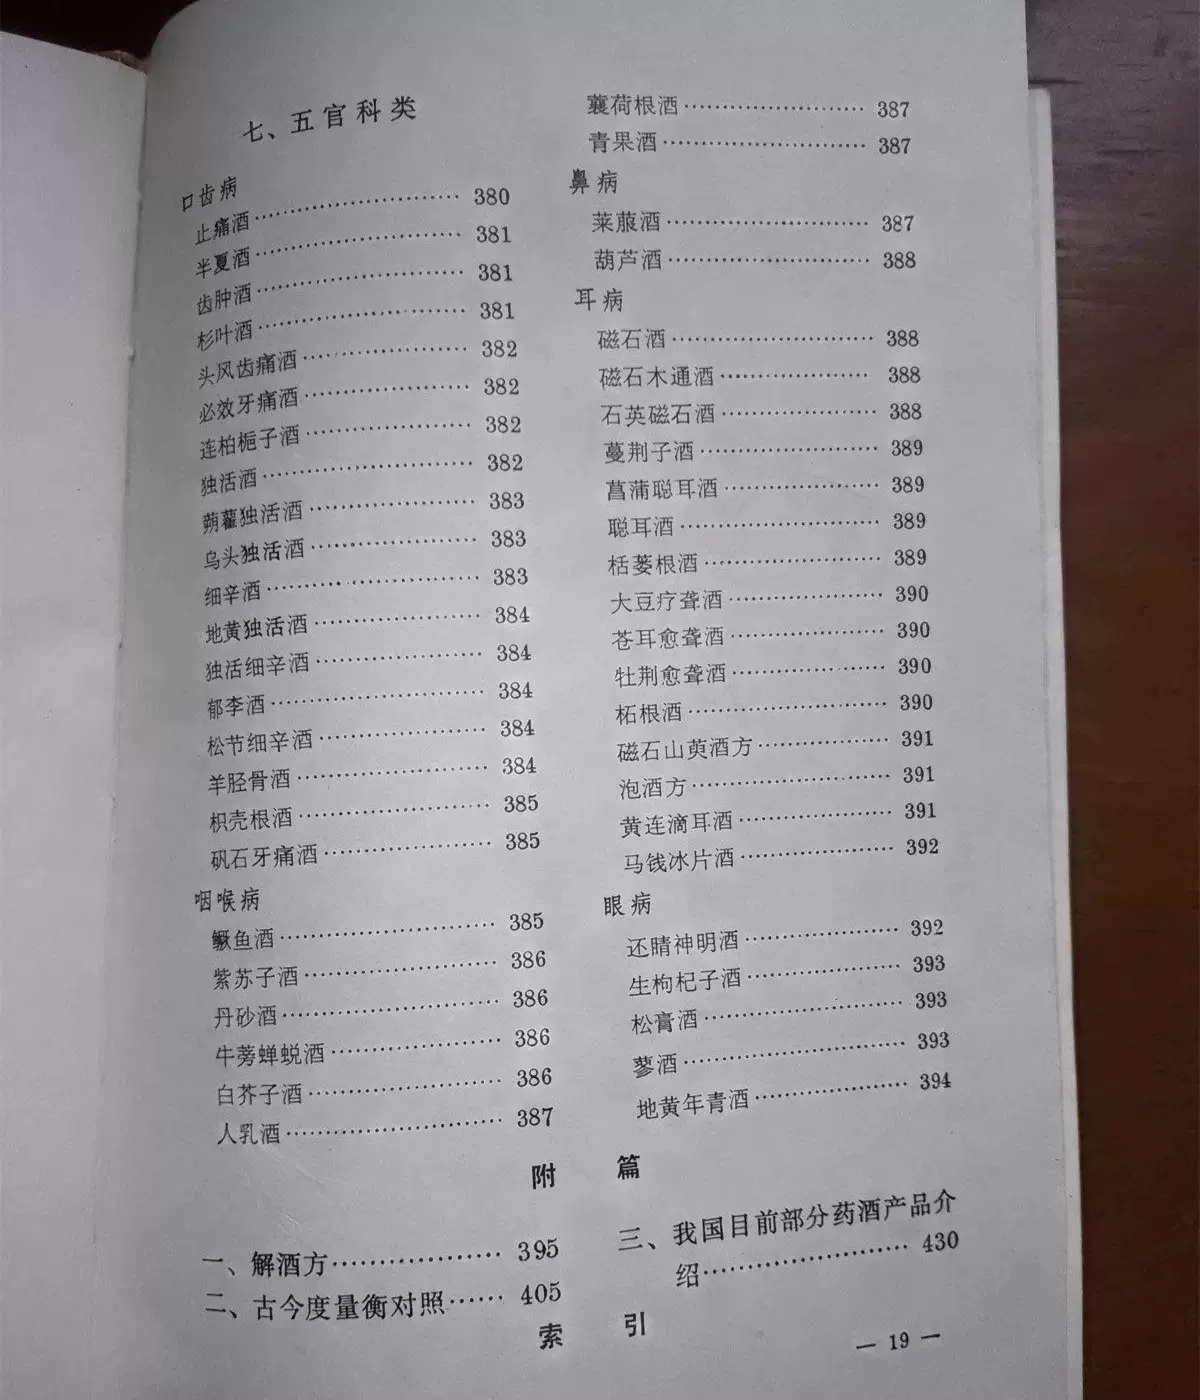 七、五官科类
口齿病
止痛酒 380
半夏酒 381
齿肿酒 381
杉叶酒 381
头风齿痛酒 382
必效牙痛酒 382
连柏栀子酒 382
独活酒 382
蒴藋独活酒 383
乌头独活酒 383
细辛酒 383
地黄独活酒 384
独活细辛酒 384
郁李酒 384
松节细辛酒 384
羊胫骨酒 384
枳壳根酒 385
矾石牙痛酒 385
咽喉病
鳜鱼酒 385
紫苏子酒 386
丹砂酒 386
牛蒡蝉蜕酒 386
白芥子酒 386
人乳酒 387
蘘荷根酒 387
青果酒 387
鼻病
莱菔酒 387
葫芦酒 388
耳病
磁石酒 388
磁石木通酒 388
石英磁石酒 388
蔓荆子酒 389
菖蒲聪耳酒 389
聪耳酒 389
栝蒌根酒 389
大豆疗聋酒 390
苍耳愈聋酒 390
牡荆愈聋酒 390
柘根酒 390
磁石山萸酒方 391
泡酒方 391
黄连滴耳酒 391
马钱冰片酒 392
眼病
还睛神明酒 392
生枸杞子酒 393
松膏酒 393
蓼酒 393
地黄年青酒 394
附 篇
一、解酒方 395
二、古今度量衡对照 405
三、我国目前部分药酒产品介
绍 430
索 引
— 19 —